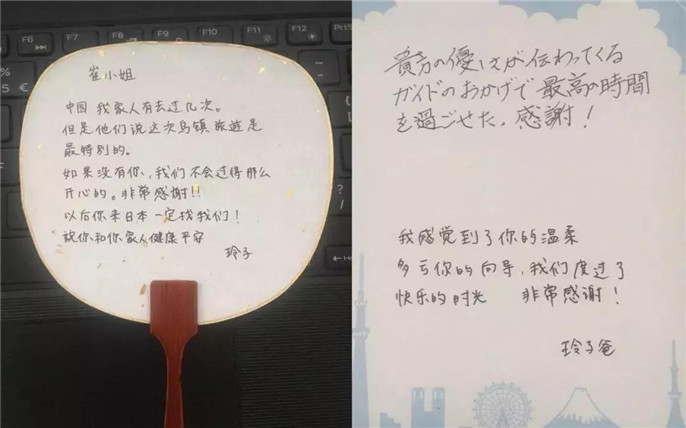 崔小姐
中国 我家人有去过几次。
但是他们说这次乌镇旅遊是
最特别的。
如果没有你,我们不会过得那么
开心的。非常感谢!!
以后你来日本一定找我们!
祝你和你家人健康平安
玲子
貴方の優しさが伝わってくる
ガイドのおかげで最高の時間
を過ごせた。感謝!
我感觉到了你的温柔
多亏你的向导,我们度过了
快乐的时光 非常感谢!
玲子爸